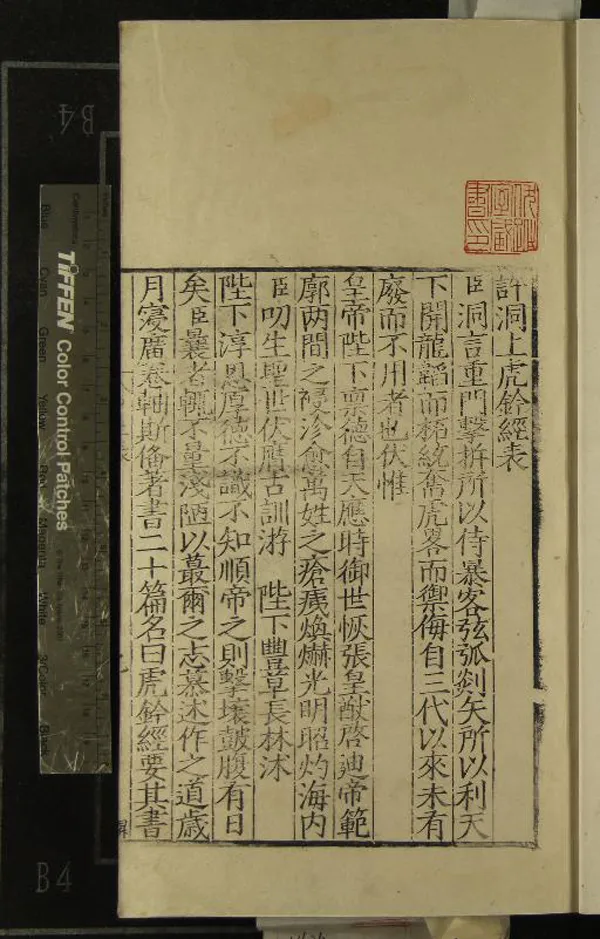 許洞上虎鈐經表
臣洞言重門擊柝所以待暴客弦弧剡矢所以利天
下開龍韜而拓統奮虎畧而禦侮自三代以來未有
廢而不用者也伏惟
皇帝陛下稟德自天應時御世恢張皇猷啓迪帝範
廓两間之祲沴愈萬姓之瘡痍煥爀光明昭灼海内
臣叨生聖世伏膺古訓游 陛下豐草長林沐
陛下淳恩厚德不識不知順帝之則擊壤鼓腹有日
矣臣曩者輒不量淺陋以蕞爾之志慕述作之道歲
月寖廣卷軸斯俻著書二十篇名曰虎鈐經要其書
TIFFEN Color Control Patches
Blue Cyan Green Yellow Red Magenta White 3/Color Black
B4
B4